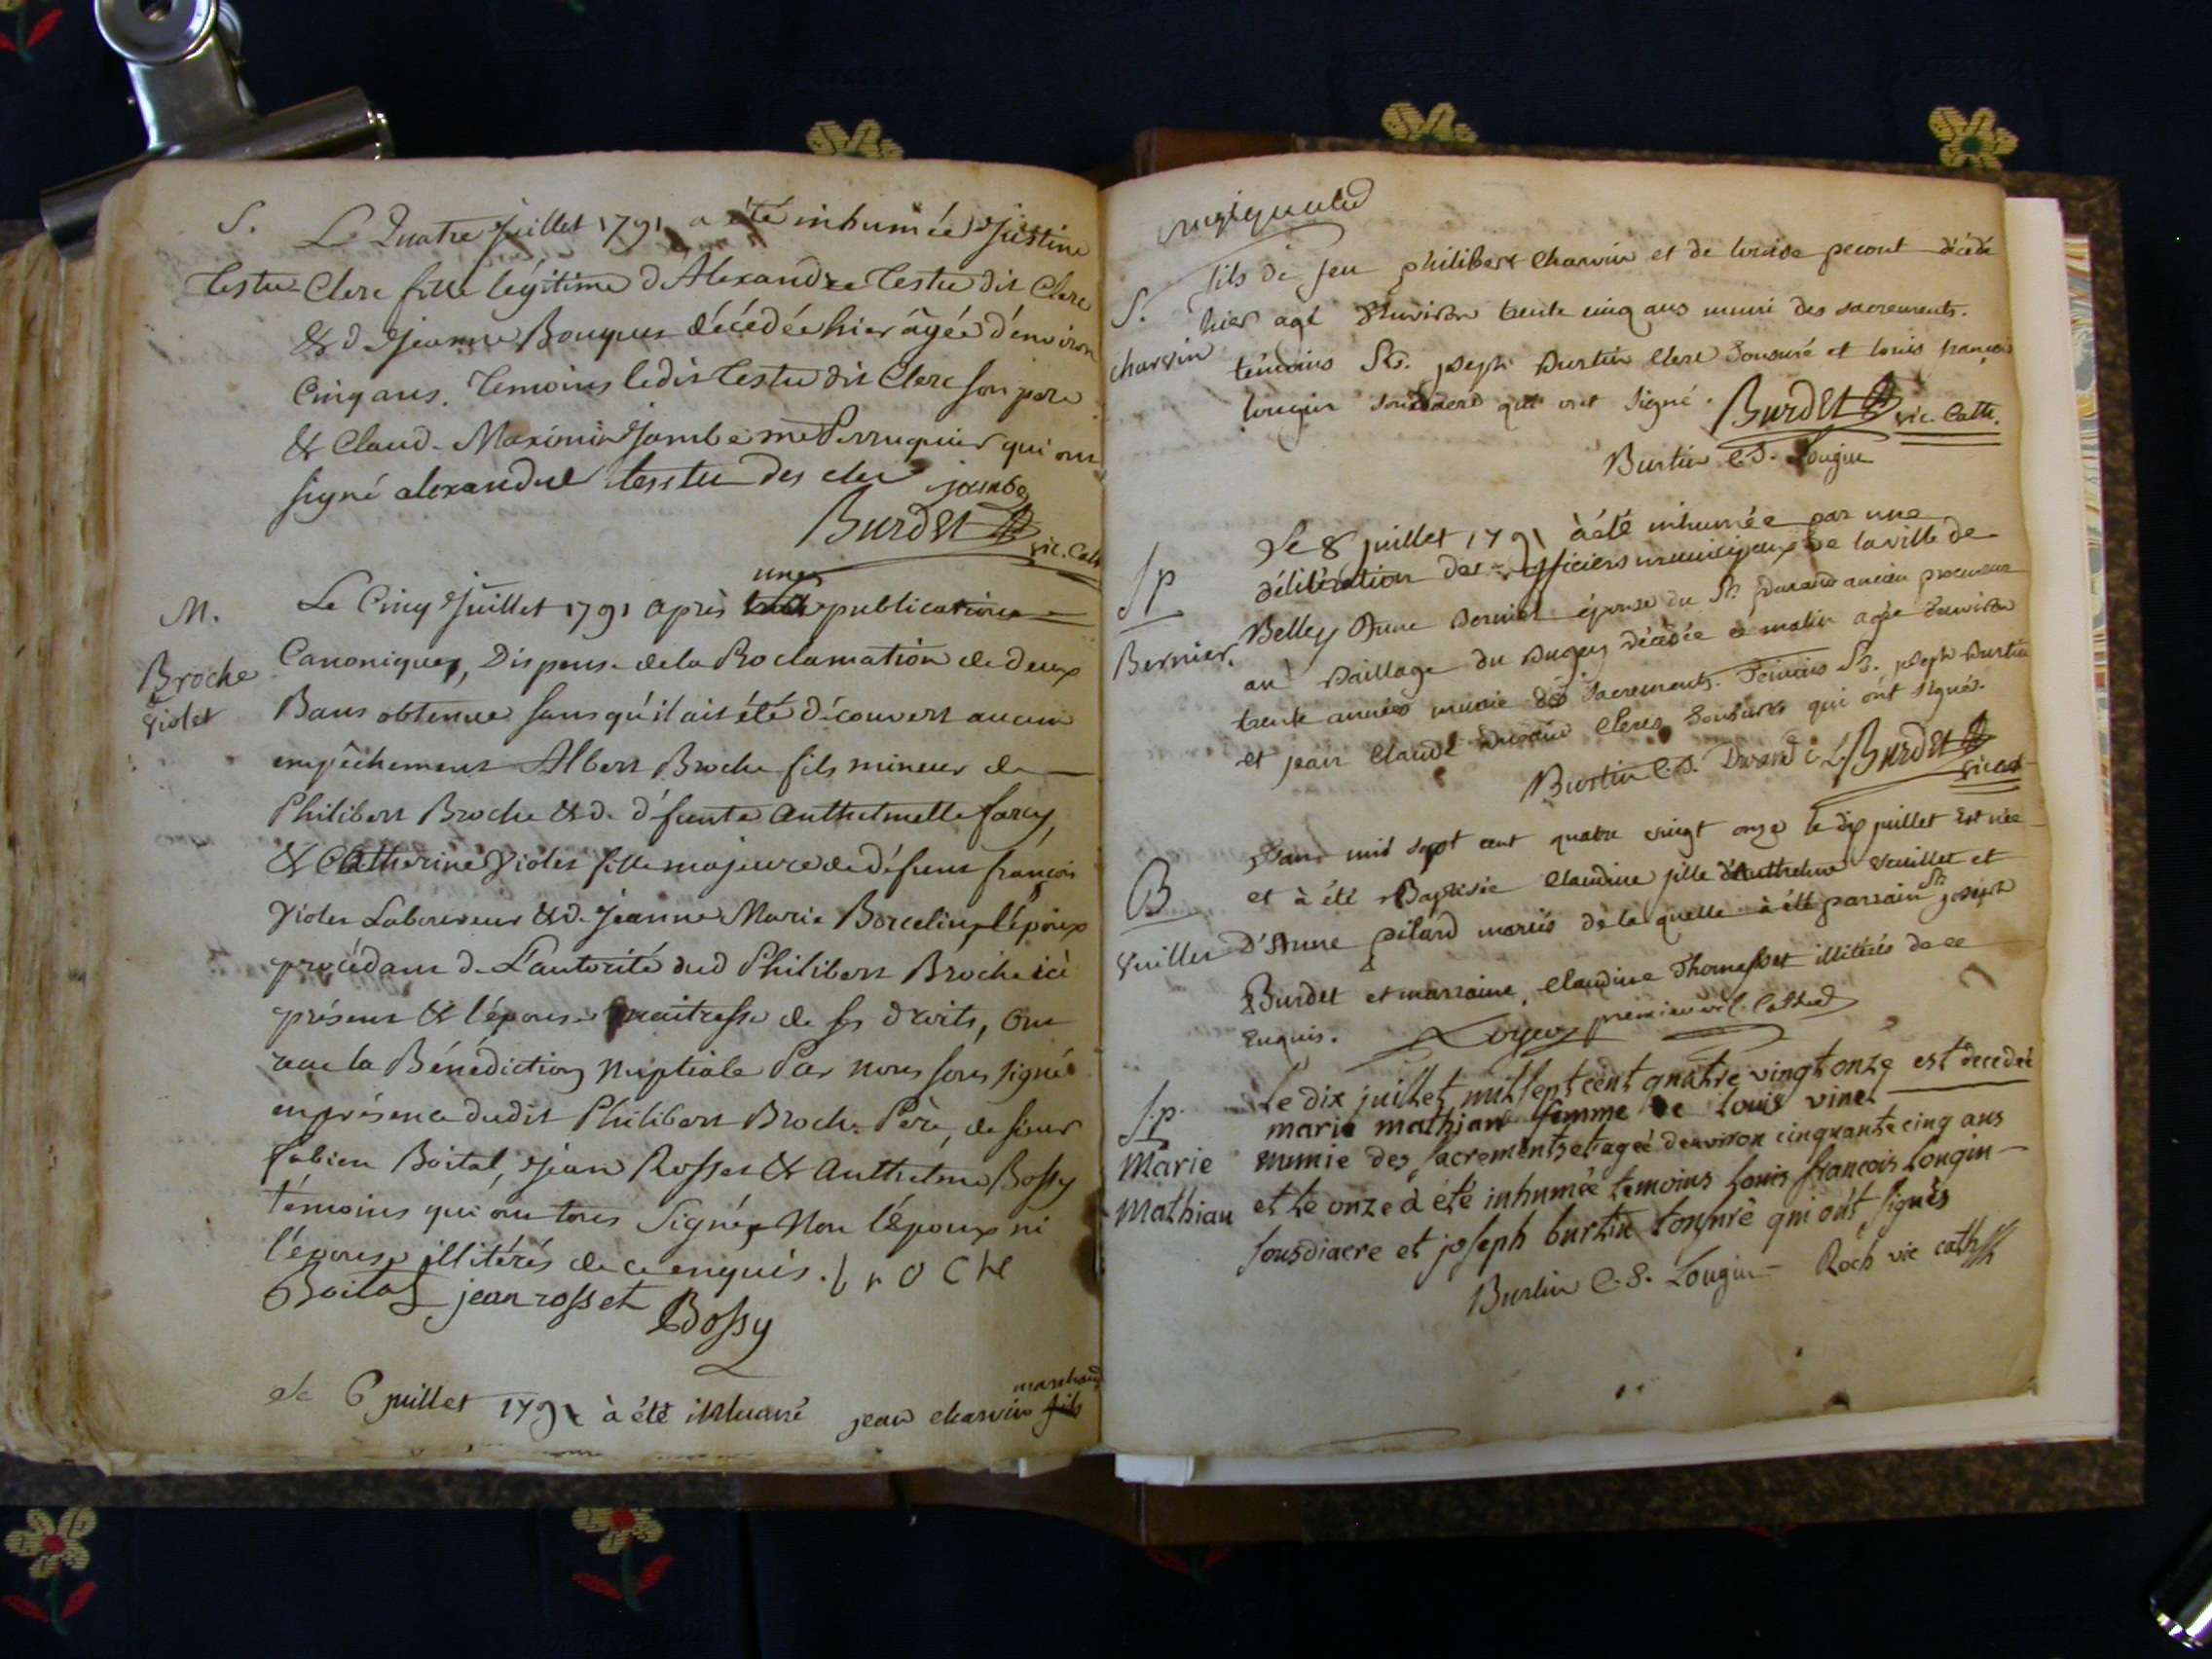 S.
Le Quatre Juillet 1791 a été inhumée Justine
Testu Clerc fille légitime d'Alexandre Testu dit Clerc
& de Jeanne Bouquer décédée hier âgée d'environ
Cinq ans. Temoins ledit Testu dit Clerc son pere
& Claud. Maximin Jambe me Perruquier qui ont
signé alexandre testu des cler jambe
Burdet vic. Cath
M.
Broche
&
Violet
Le Cinq Juillet 1791 après une publication
Canonique, Dispense de la Proclamation de deux
Bans obtenue sans qu'il ait été découvert aucun
empêchement Albert Broche fils mineur de
Philibert Broche & de défunte Anthelmette farcy,
& Catherine Violet fille majeure de défunt françois
Violet Laboureur & de Jeanne Marie Borcelin, l'époux
procédant de L'autorité dud Philibert Broche ici
présent & l'épouse maitresse de ses droits, Ont
recu la Bénédiction Nuptiale Par nous sous signé
en présence dudit Philibert Broche Père, de sieur
fabien Boital, Jean Rosset & Anthelme Bossy
témoins qui ont tous Signé, Non l'époux ni
l'épouse illitérés de ce enquis. brOCHe
Boital jean rosset Bossy
Le 6 juillet 1791 à été inhumé jean charvin fils
marchand
fils de feu philibert Charvin et de louise pecout décédé
S.
charvin
hier agé d'Environ trente cinq ans muni des sacrements.
témoins Srs. joseph Burtin Clerc Tonsuré et louis françois
longin sousdiacre qui ont signé. Burdet vic. Cath.
Burtin C.T. Longin
Sp
Bernier.
Le 8 juillet 1791 à été inhumée par une
délibération des officiers municipaux de la ville de
Belley Anne Bernier épouse du Sr. Durand ancien procureur
au Baillage du Bugey décédée ce matin agée d'environ
trente années munie des Sacrements. Témoins Sr. joseph Burtin
et jean Claude Durand Clercs Tonsurés qui ont signés.
Burtin C.T. Durand c. t. Burdet vic cat
B
Vuillet
L'an mil sept cent quatre vingt onze le dix juillet Est née
et à été Baptisée Claudine fille d'Anthelme Vuillet et
D'Anne pitard mariés de la quelle à été parrain Sr joseph
Burdet et marraine, Claudine Thomasset illitérés de ce
Enquis. Loyer premier vic. Cathed
S.p.
Marie
Mathian
Le dix juillet mil sept cent quatre vingt onze est decedée
marie mathian femme de louis vinet
munie des sacrements et ageé denviron cinquante cinq ans
et le onze a été inhumée temoins louis françois longin
sousdiacre et joseph burtin tonsuré qui ont signés
Burtin C.T. Longin Roch vic cath